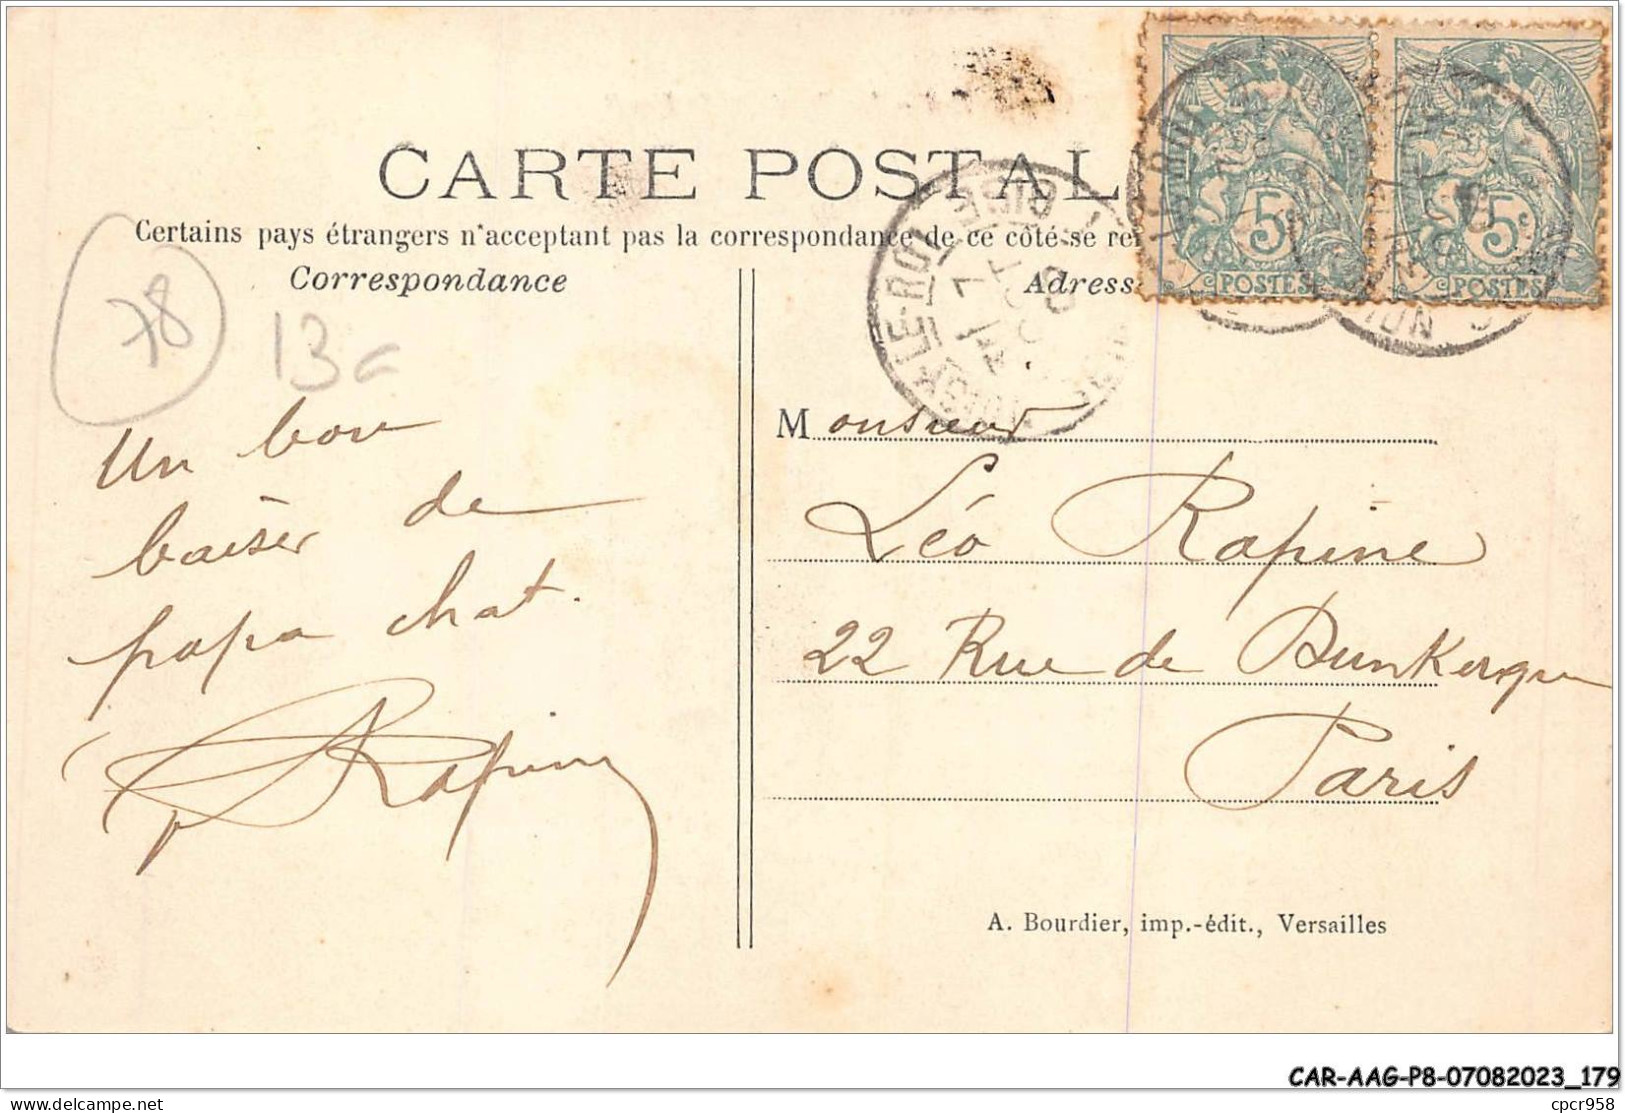 CARTE POSTAL
Certains pays étrangers n'acceptant pas la correspondance de ce côté se re
Correspondance
Adress
78
13
5c
POSTES
5c
POSTES
LE-ROI
Un bon
baiser de
papa chat.
Rapine
Monsieur
Léo Rapine
22 Rue de Dunkerque
Paris
A. Bourdier, imp.-édit., Versailles
CAR-AAG-P8-07082023_179
delcampe.net
cpcr958